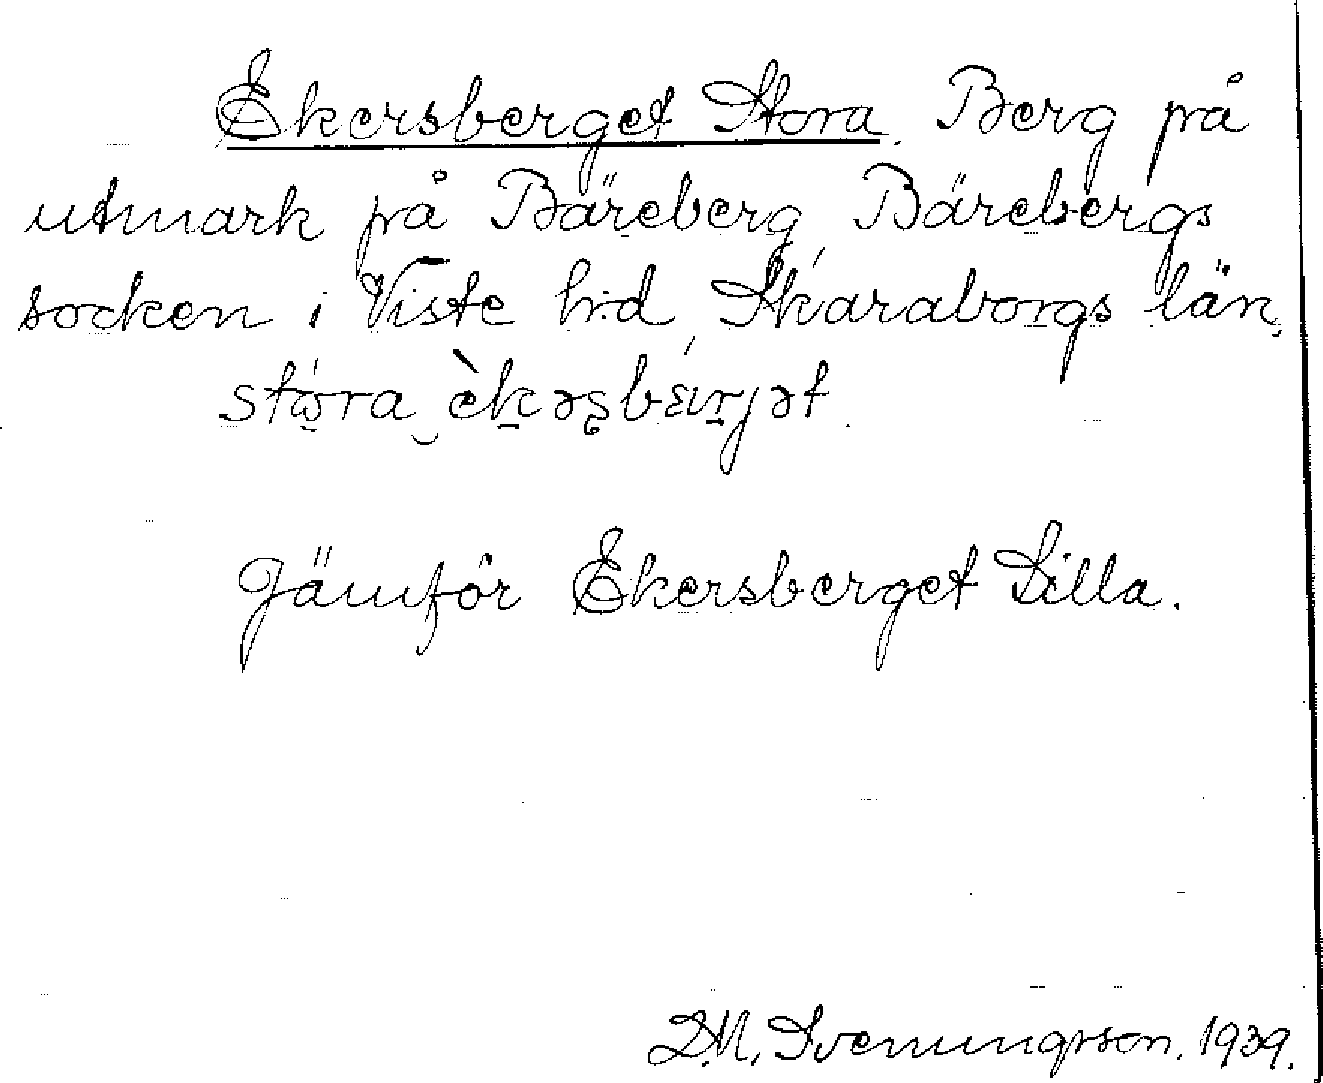 Ekersberget Stora. Berg på
utmark på Bäreberg, Bärebergs
socken i Viste hd, Skaraborgs län.
stó̤ra‿èkəʂbǽrjət.
Jämför Ekersberget Lilla.
D.M. Svenungsson. 1939.